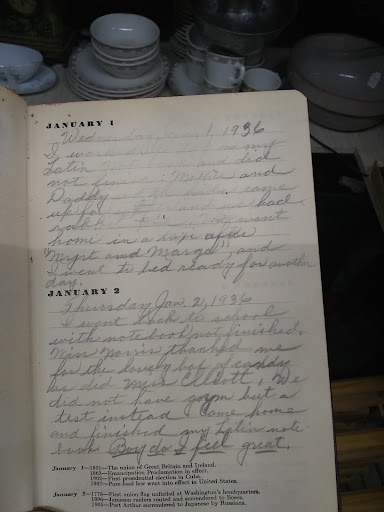 JANUARY 1
Wednesday, 1, 1936
I my
Latin and did
not Mother and
Daddy came
up for and we had
They went
home in a daze after
"Myrt and Marge", and
I went to bed ready for another
day.
JANUARY 2
Thursday Jan. 2, 1936
I went back to school
with note book not finished.
Miss Norris thanked me
for the lovely box of candy
as did Miss Elliott. We
did not have gym but a
test instead. Came home
and finished my Latin note
book. Boy do I feel great.
January 1—1801—The union of Great Britain and Ireland.
1863—Emancipation Proclamation in effect.
1902—First presidential election in Cuba.
1907—Pure food law went into effect in United States.
January 2—1776—First union flag unfurled at Washington's headquarters.
1896—Jameson raiders routed and surrendered to Boers.
1905—Port Arthur surrendered to Japanese by Russians.